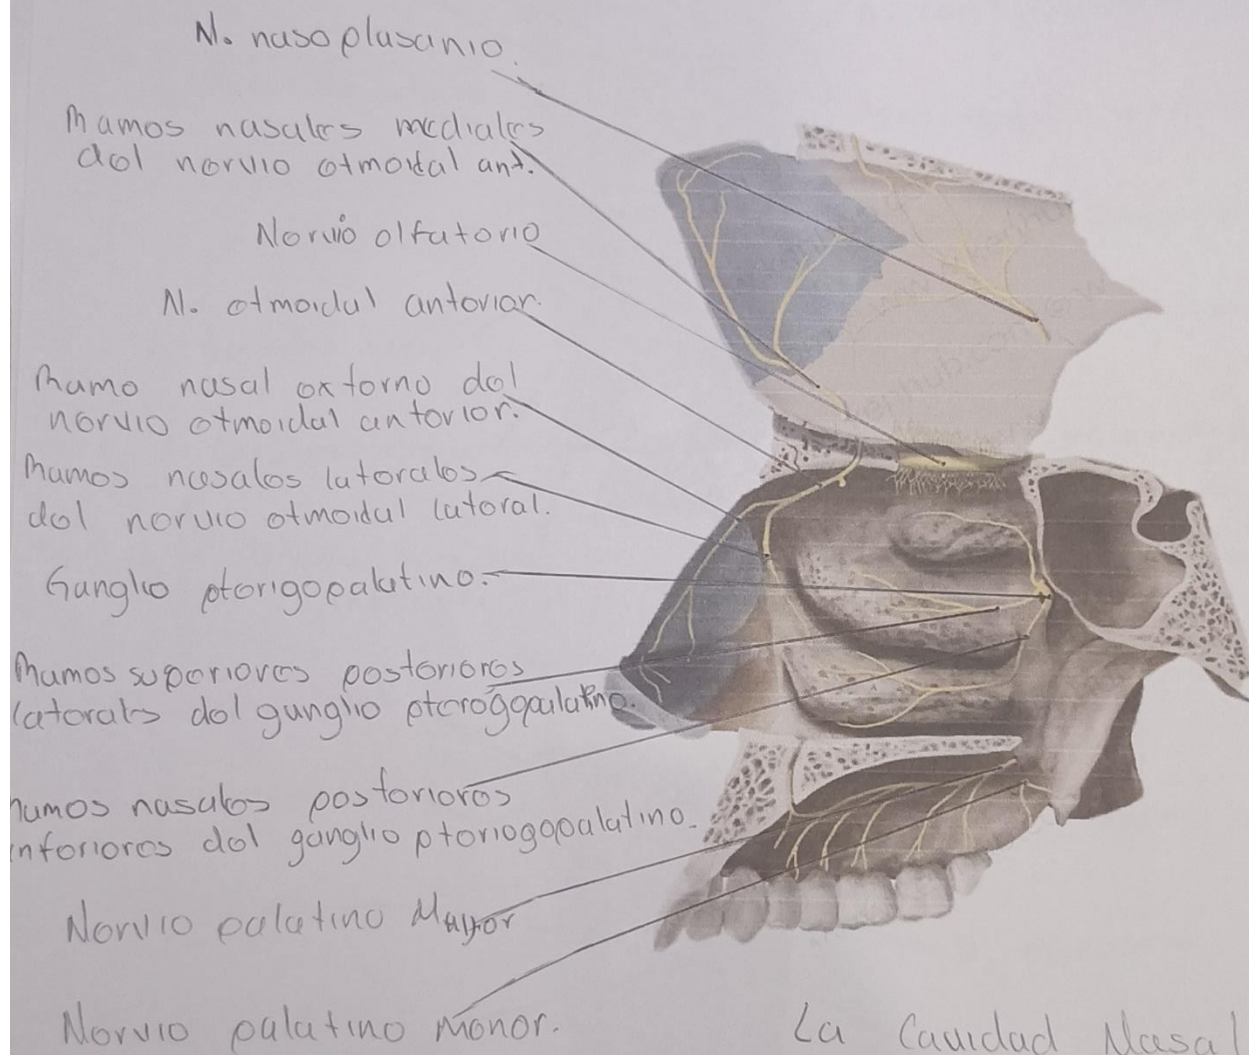 N. naso plasanio.
Mamos nasales mediales
dol norvio otmoidal ant.
Norvio olfatorio
N. otmoidal antorior.
Ramo nasal oxtorno dol
norvio otmoidal antorior.
Mamos nasalos latoralos
dol norvio otmoidal latoral.
Ganglio ptorigopalatino.
Mamos superiores postorioros
latorals dol ganglio pterogopalatino.
Mamos nasalos postorioros
inforioros dol ganglio ptoriogopalatino.
Norvio palatino Mayor
Norvio palatino Monor.
La Cavidad Nasal